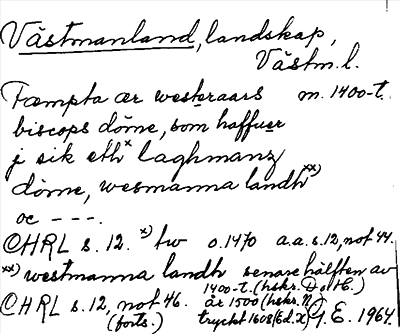 Västmanland, landskap,
Västm. l.
Fæmpta ær westeraars m. 1400-t.
biscops döme, som haffuer
j sik eth x) laghmanz
döme, wesmanna landh xx)
oc ---.
CHRL s. 12. x) tw o. 1470 a.a. s. 12, not 44.
xx) westmanna landh senare hälften av
1400-t. (hskr. D o H).
CHRL s. 12, not 46. år 1500 (hskr. N)
(forts.) tryckt 1608 (Ed. X) G. E. 1964.